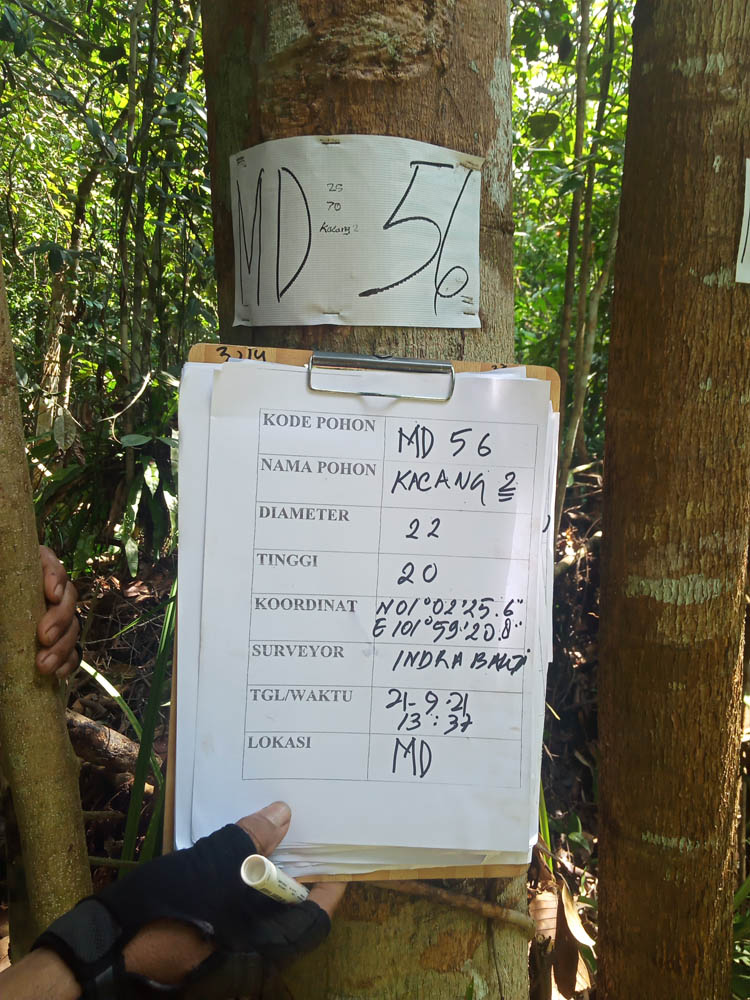 MD 56
25
70
Kacang 2
KODE POHON MD 56
NAMA POHON KACANG 2
DIAMETER 22
TINGGI 20
KOORDINAT N 01°02'25.6"
E 101°59'20.8"
SURVEYOR INDRA
TGL/WAKTU 21-9-21
13:37
LOKASI MD